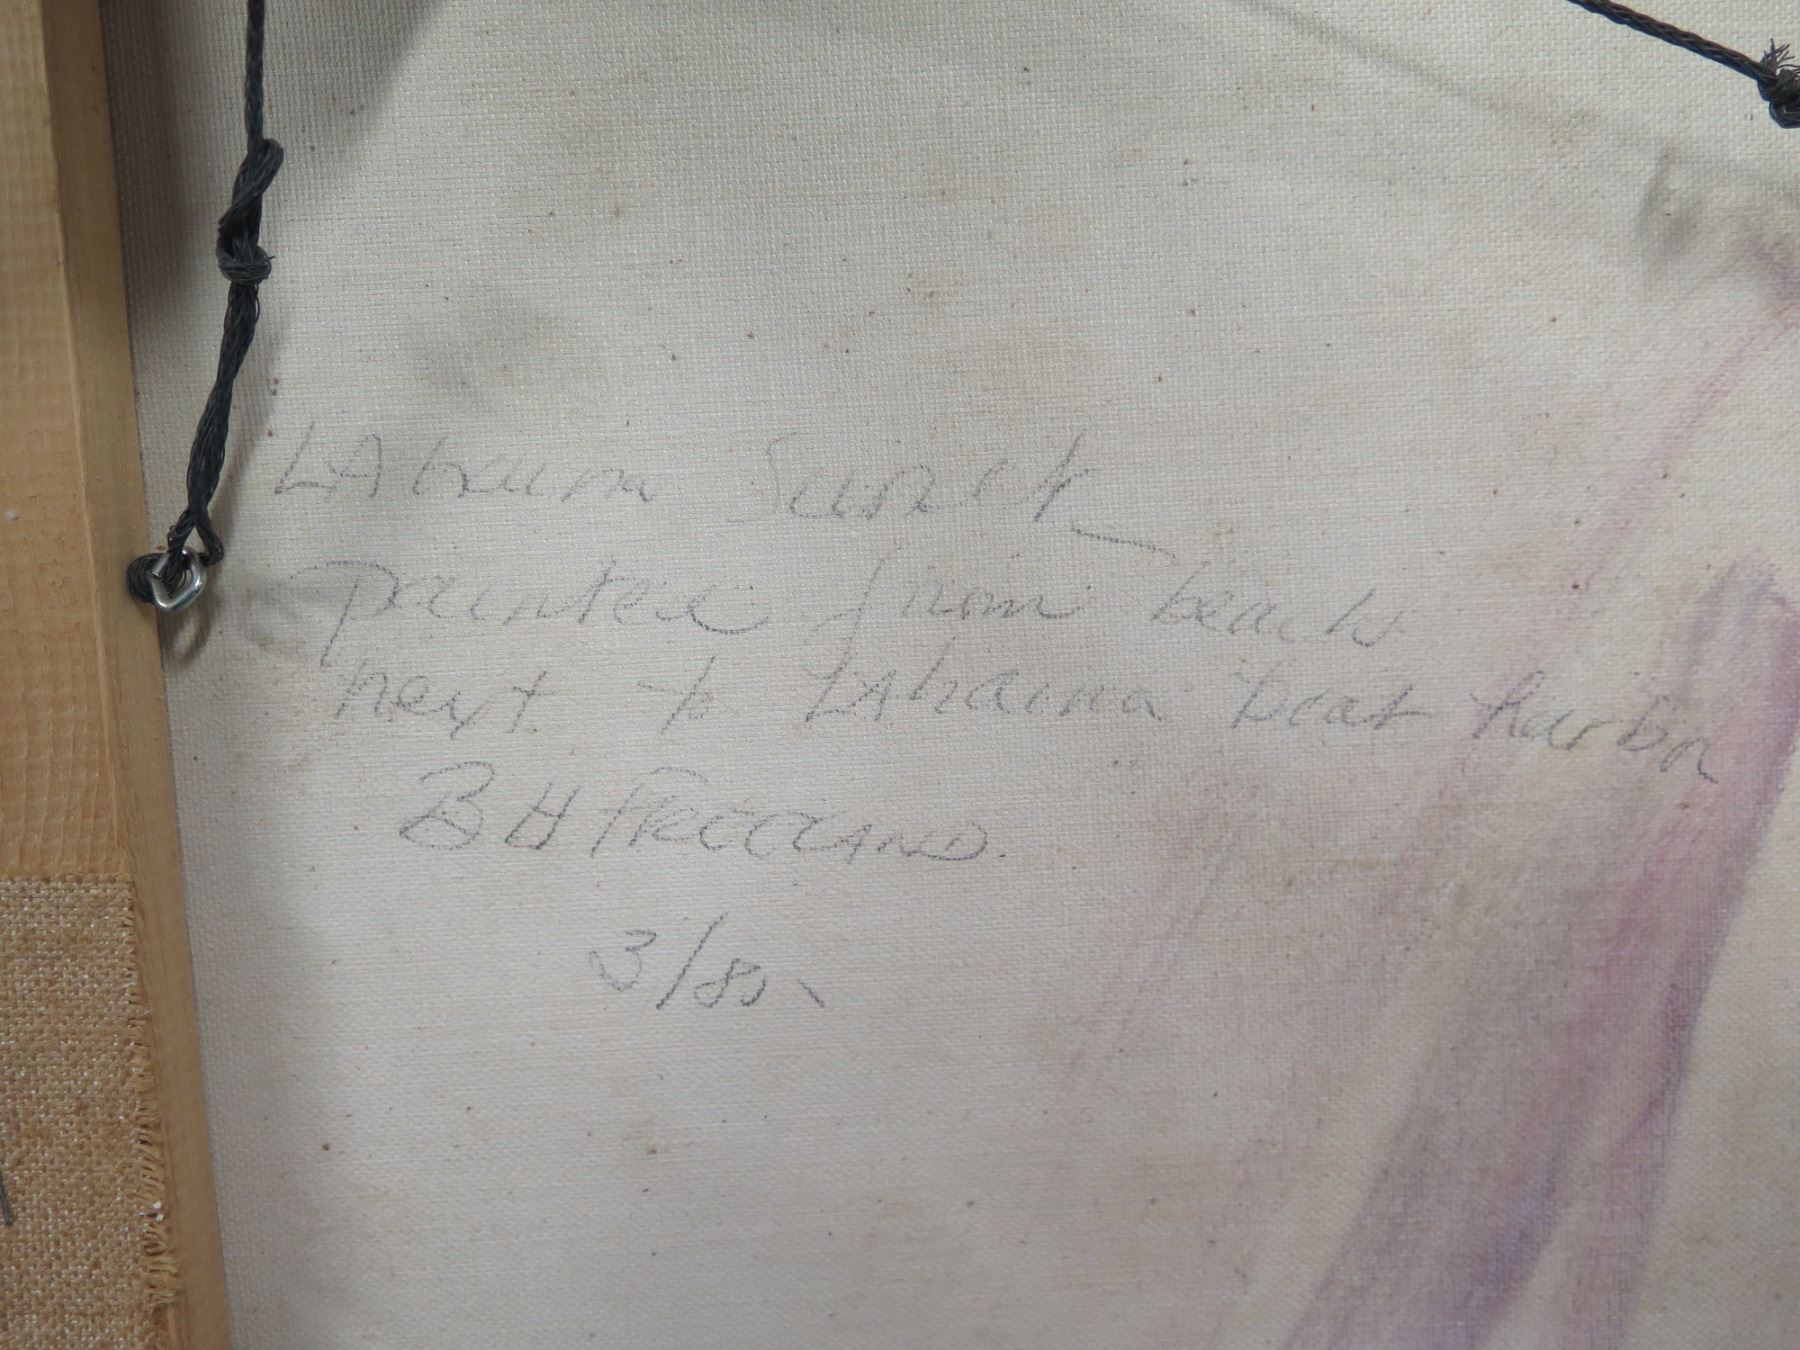 LAhaina Sunset
painted from beach
next to LAhaina boat harbor
BH FREELAND.
3/80